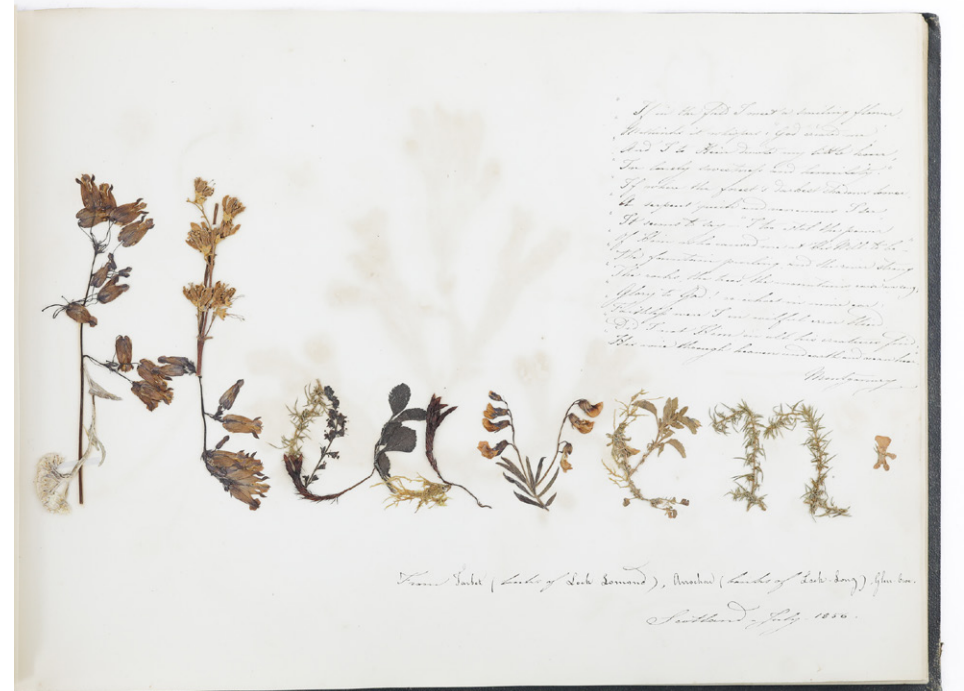 If in the field I meet a smiling flower
Methinks it whispers, "God created me
And I to Him devote my little hour,
In lonely sweetness and humility."
If where the forest's darkest shadows lower
A serpent quick and venomous I see,
It seems to say "I too extol the power
Of Him who caused me at His Will to be."
The fountain purling and the river strong
The rocks, the trees, the mountains raise one song,
Glory to God! re-echoes in mine ear.
Faithless were I in wilful error blind
Did I not Him in all his creatures find
His voice through heaven and earth and ocean hear
Montgomery
Heaven.
From Tarbet (banks of Loch Lomond), Arrochar (banks of Loch Long), Glen
Scotland July